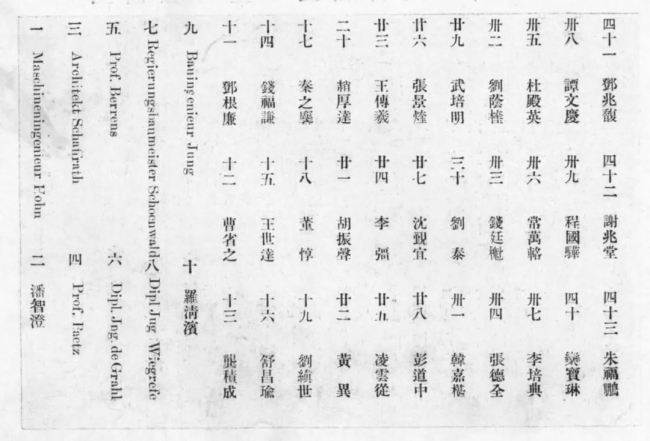 一 Maschineningenieur 二 潘智澄
三 Architekt Schaffrath 四 Prof. Paetz
五 Prof. Berrens 六 Dipl. Jng. de Grahl
七 Regierungsbaumeister Schoenwald 八 Dipl Jng Wiegrefe
九 Bauingenieur Jung 十 羅清濱
十一 鄧根廉 十二 曹省之 十三 龔積成
十四 錢福謙 十五 王世達 十六 舒昌瑜
十七 秦之襄 十八 董惇 十九 劉績世
二十 趙厚達 廿一 胡振聲 廿二 黃異
廿三 王傳羲 廿四 李彊 廿五 凌雲從
廿六 張景煃 廿七 沈覲宜 廿八 彭道中
廿九 武培明 三十 劉泰 卅一 韓嘉樾
卅二 劉蔭桂 卅三 錢廷 卅四 張德全
卅五 杜殿英 卅六 常萬輅 卅七 李培典
卅八 譚文慶 卅九 程國驊 四十 欒寶琳
四十一 鄧兆馥 四十二 謝兆堂 四十三 朱福鵬